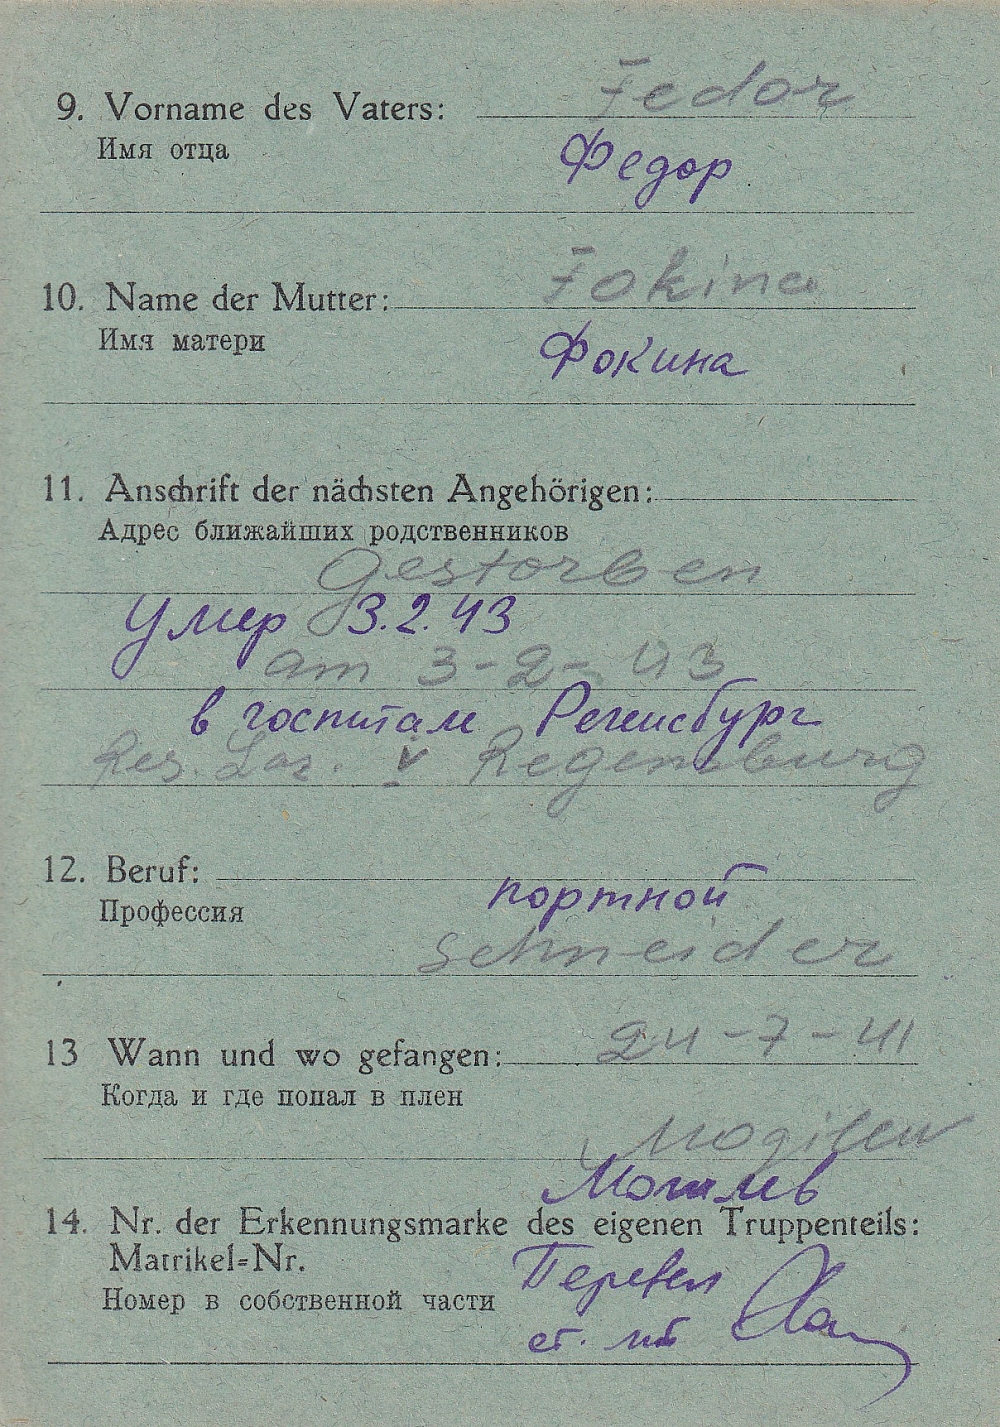 Fedor
9. Vorname des Vaters:
Имя отца
Федор
Fokina
10. Name der Mutter:
Имя матери
Фокина
11. Anschrift der nächsten Angehörigen:
Адрес ближайших родственников
Gestorben
Умер 3.2.43
am 3-2-43
в госпитале Регенсбург
Res. Laz. V Regensburg
12. Beruf:
портной
Профессия
Schneider
13 Wann und wo gefangen: 24-7-41
Когда и где попал в плен
Mogilew
Могилев
14. Nr. der Erkennungsmarke des eigenen Truppenteils:
Matrikel=Nr.
Перевел
Номер в собственной части
ст.